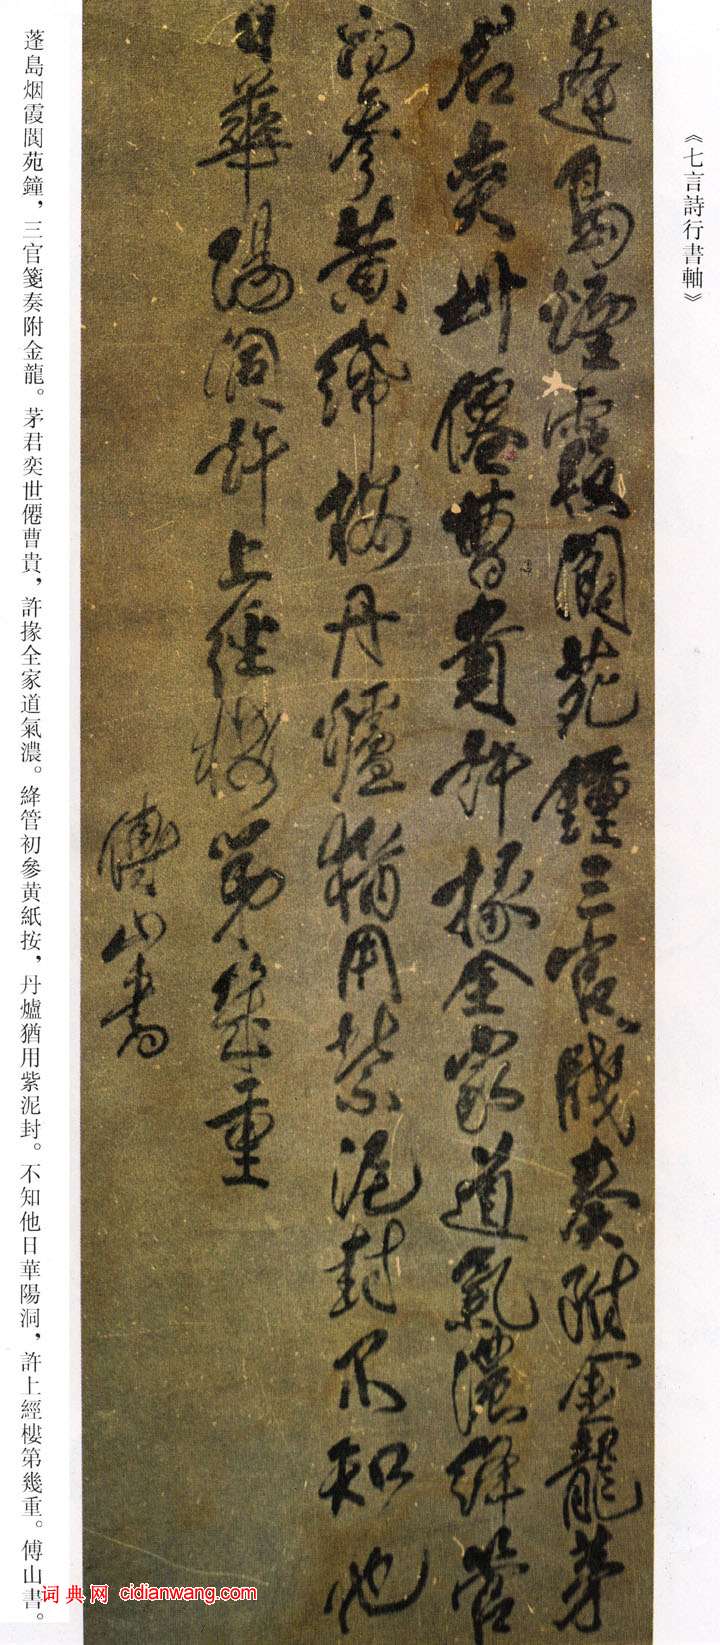 《七言詩行書軸》
蓬島煙霞閬苑鐘三官牋奏附金龍茅
君奕世僊曹貴許掾全家道氣濃絳管
初參黄紙按丹爐猶用紫泥封不知他
日華陽洞許上經樓第幾重
傅山書
蓬島烟霞閬苑鐘，三官箋奏附金龍。茅君奕世僊曹貴，許掾全家道氣濃。絳管初參黄紙按，丹爐猶用紫泥封。不知他日華陽洞，許上經樓第幾重。傅山書。
词典网 cidianwang.com